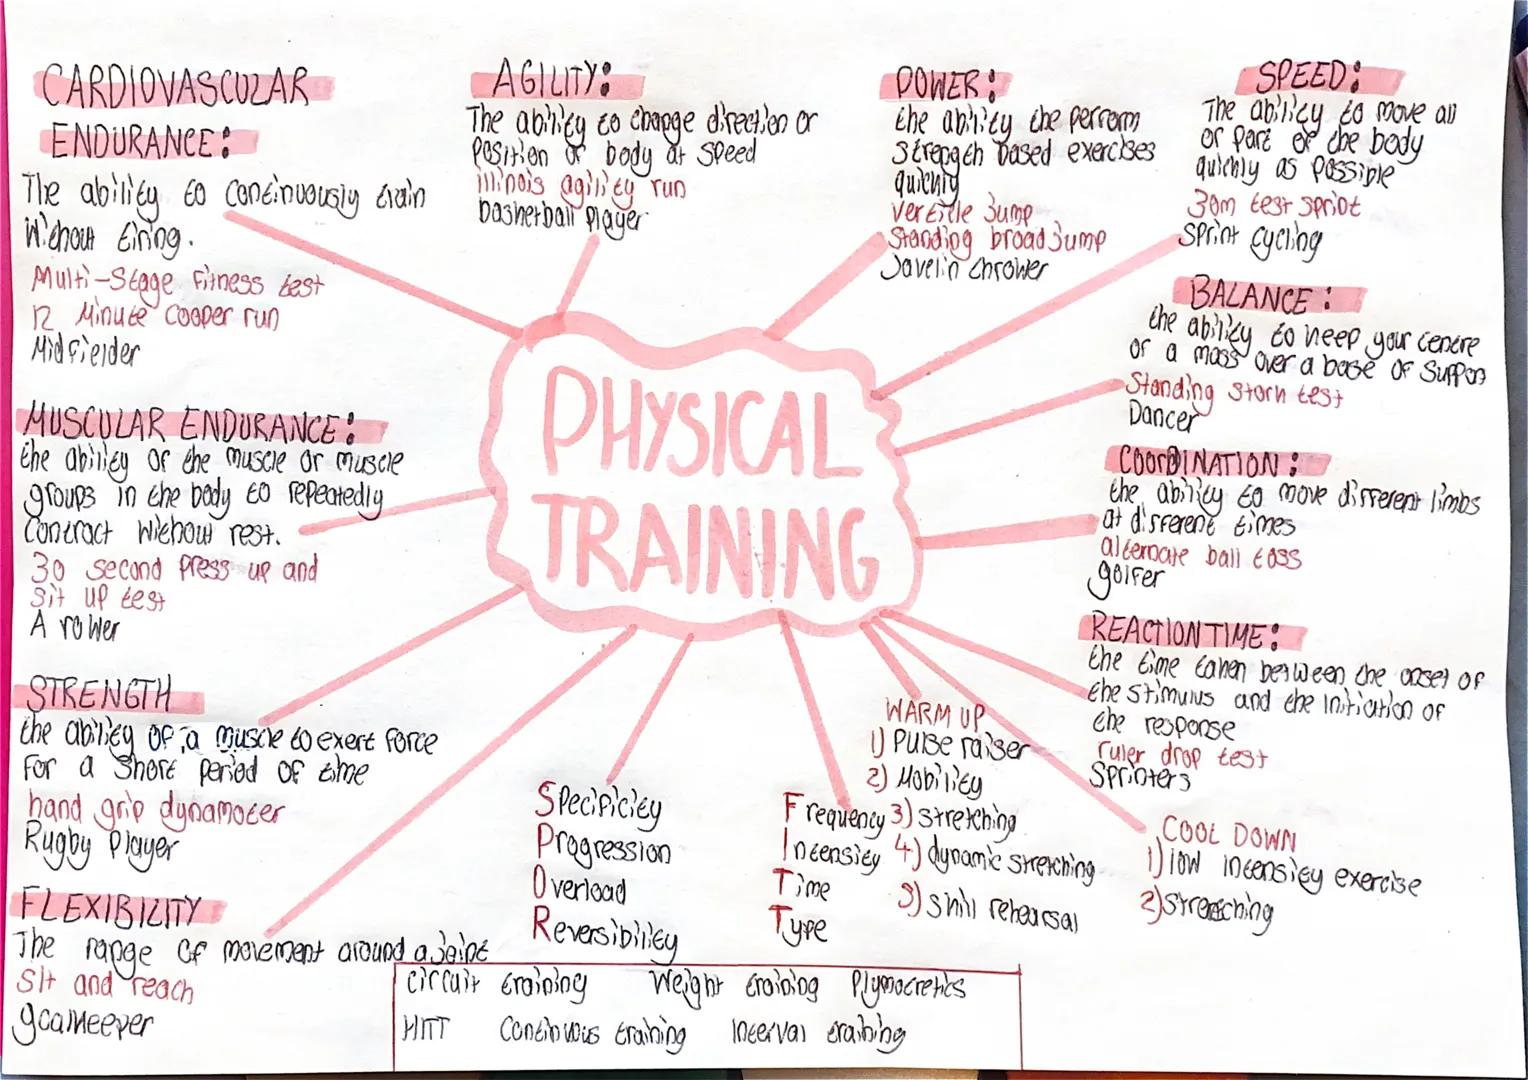 CARDIOVASCULAR
ENDURANCE:
The ability to continuously train
without tiring.
Multi-Stage Fitness test
12 Minute cooper run
Midfielder
MUSCULAR ENDURANCE:
the ability of the muscle or muscle
groups in the body to repeatedly
contract without rest.
30 second press up and
sit up test
A rower
STRENGTH
the ability of a muscle to exert force
for a short period of time
hand grip dynamoter
Rugby player
FLEXIBILITY
The range of movement around a joint
Sit and reach
goalkeeper
AGILITY:
The ability to change direction or
position of body at speed
illinois agility run
basketball player
POWER:
the ability the perform
strength based exercises
quickly
verticle jump
Standing broad jump
Javelin thrower
SPEED:
The ability to move all
or part of the body
quickly as possible
30m test sprint
sprint cycling
BALANCE:
the ability to keep your centre
of a mass over a base of support
Standing stork test
Dancer
COORDINATION:
the ability to move different limbs
at different times
alternate ball toss
golfer
REACTION TIME:
the time taken between the onset of
the stimulus and the initiation of
the response
ruler drop test
Sprinters
PHYSICAL
TRAINING
Specificity
Progression
Overload
Reversibility
Frequency
Intensity
Time
Type
WARM UP
1) Pulse raiser
2) Mobility
3) stretching
4) dynamic stretching
5) skill rehearsal
COOL DOWN
1) low intensity exercise
2) stretching
circuit training Weight training Plymocretics
HITT Continuous training Interval training